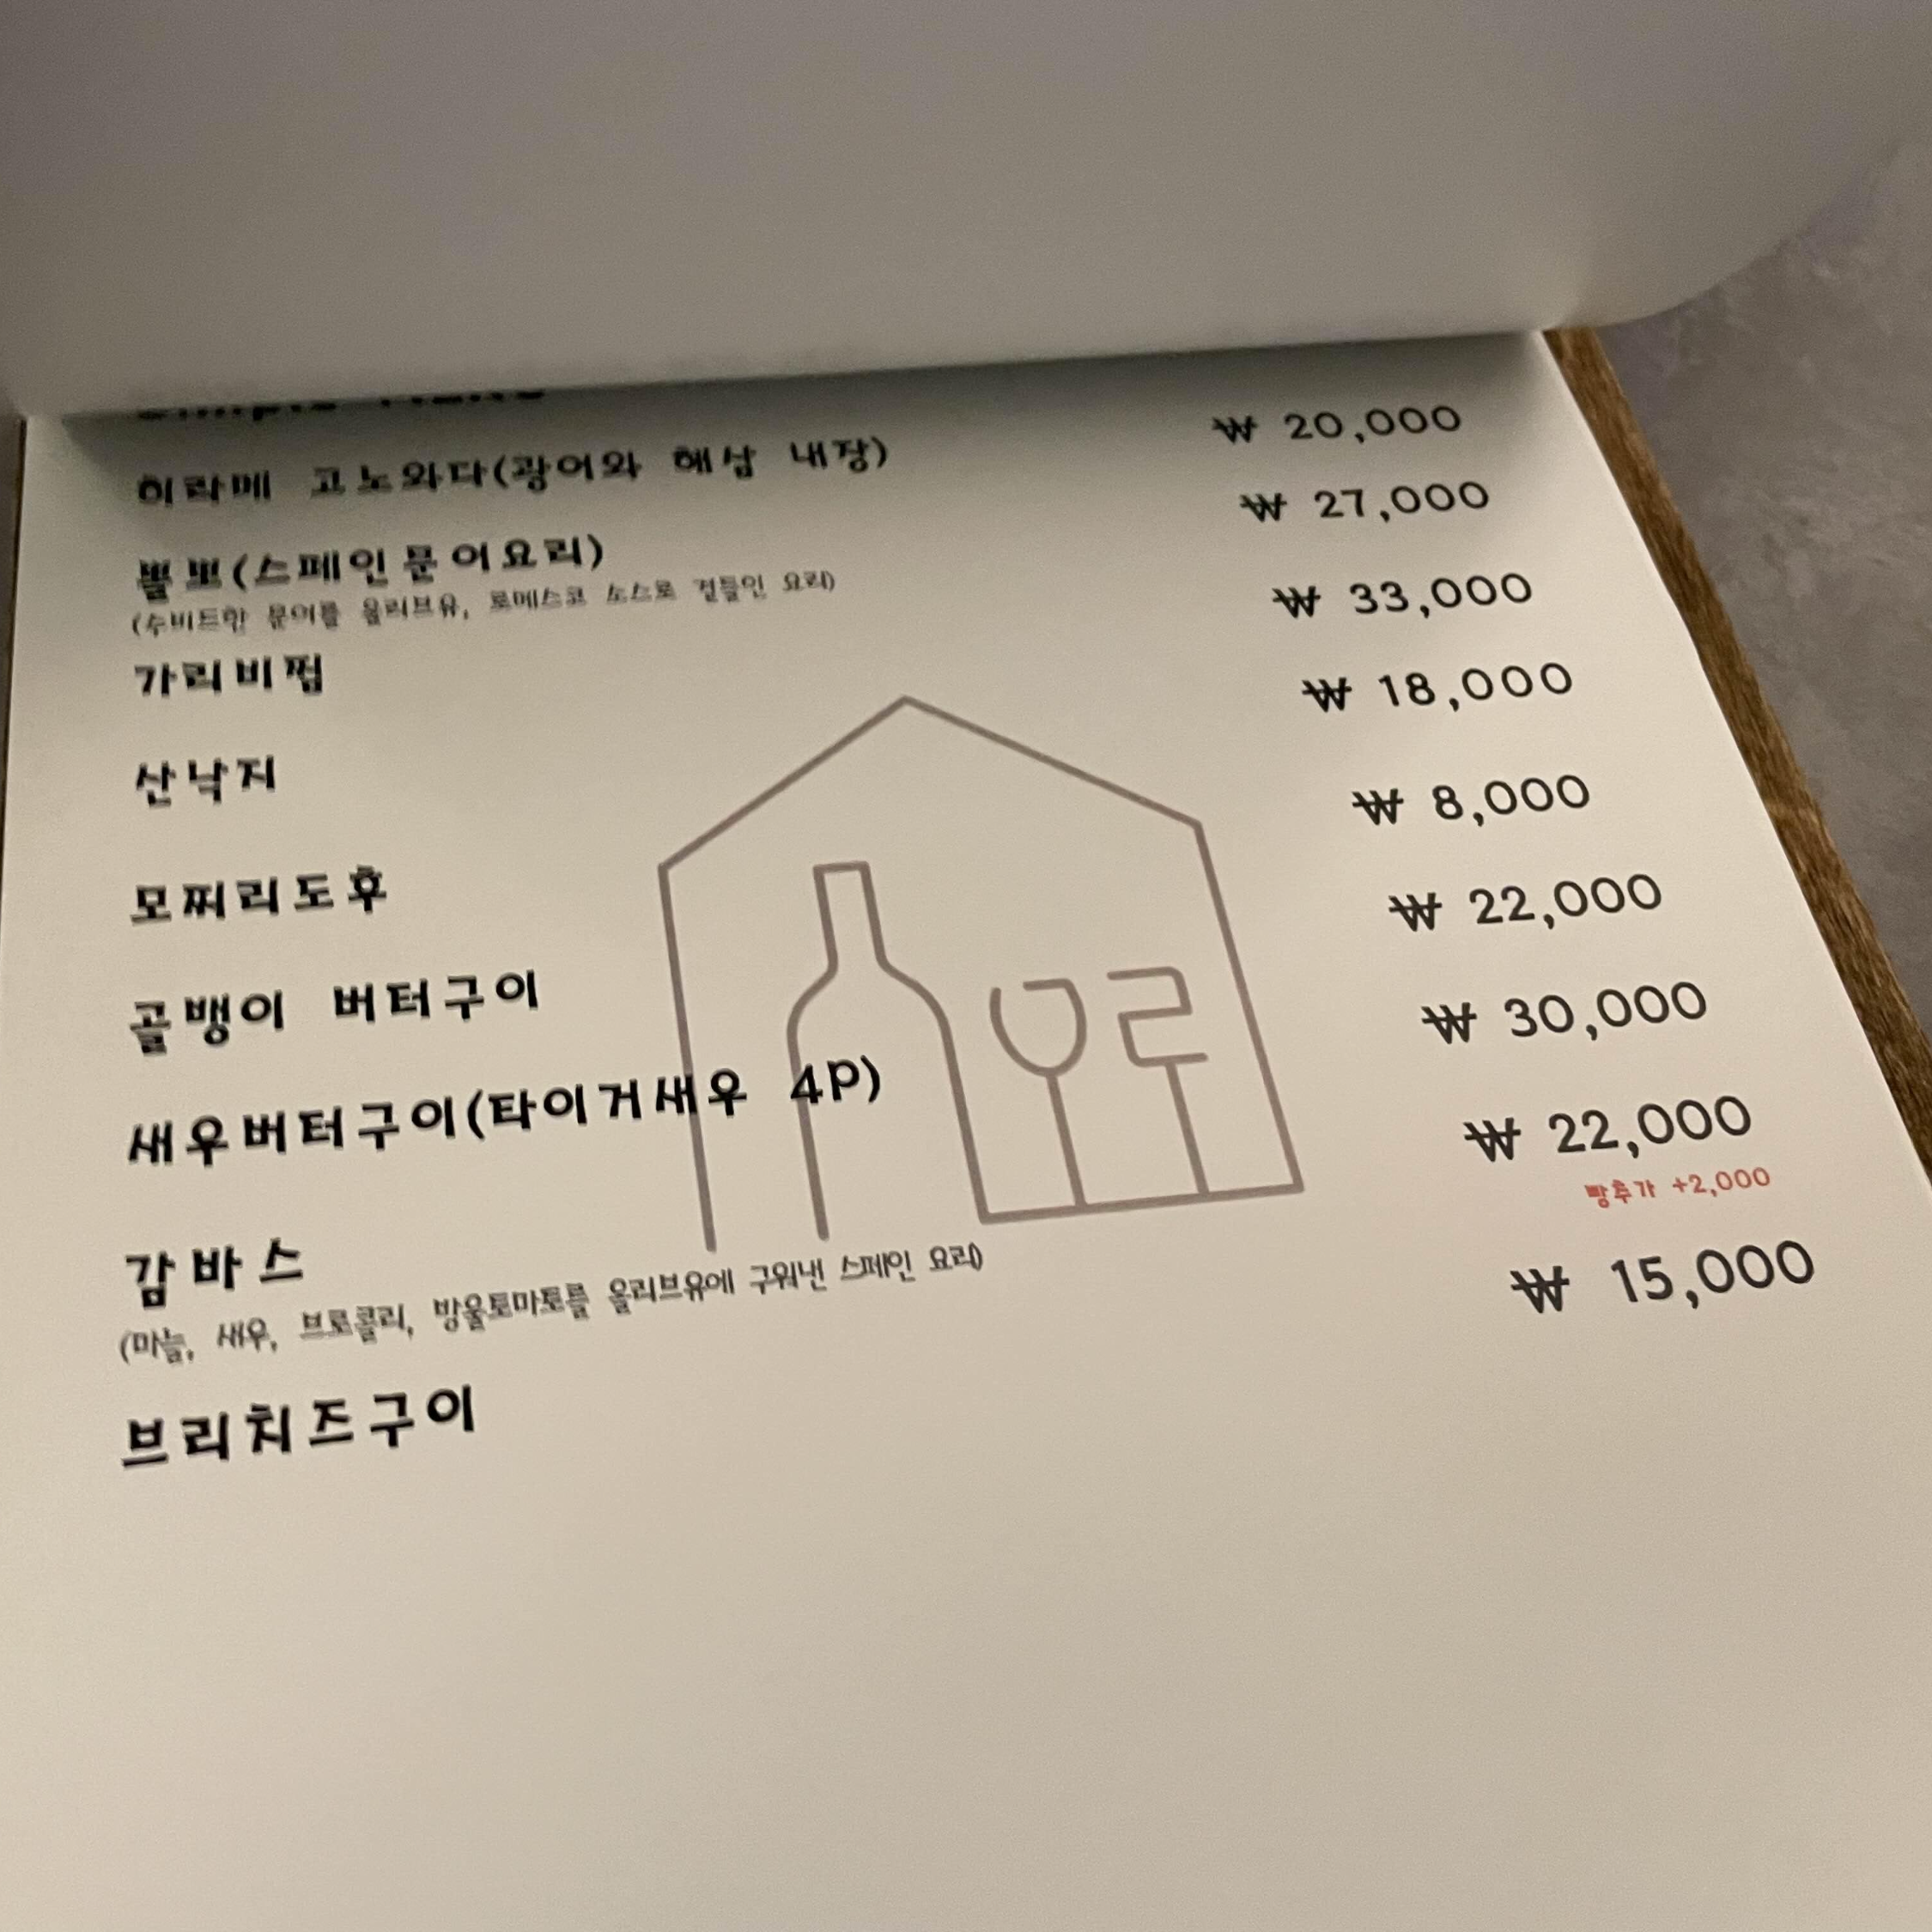 히라메 고노와다(광어와 해삼 내장) ₩ 20,000
뽈뽀(스페인문어요리) ₩ 27,000
(수비드한 문어를 올리브유, 로메스코 소스로 곁들인 요리)
가리비찜 ₩ 33,000
산낙지 ₩ 18,000
모찌리도후 ₩ 8,000
골뱅이 버터구이 ₩ 22,000
새우버터구이(타이거새우 4P) ₩ 30,000
감바스 ₩ 22,000
(마늘, 새우, 브로콜리, 방울토마토를 올리브유에 구워낸 스페인 요리)
빵추가 +2,000
브리치즈구이 ₩ 15,000